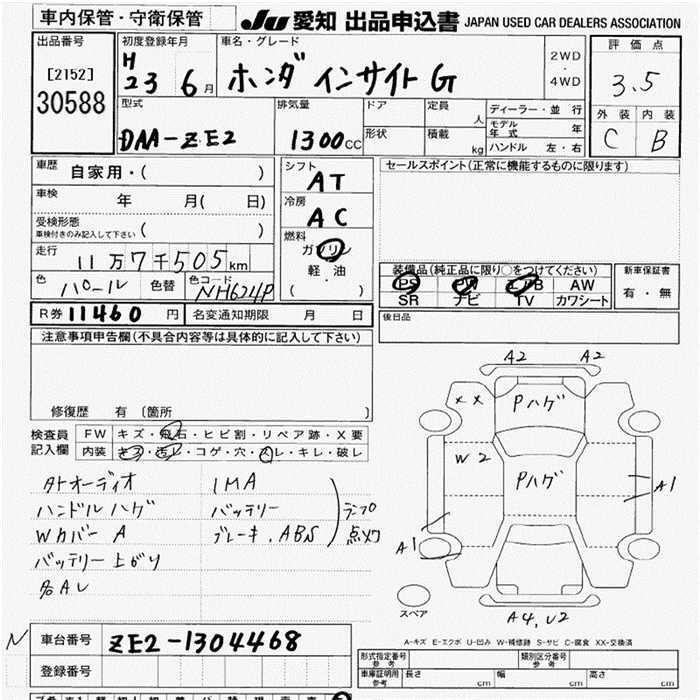 車内保管・守衛保管
JU 愛知 出品申込書 JAPAN USED CAR DEALERS ASSOCIATION
出品番号
[2152]
30588
初度登録年月
H
23 6月
車名・グレード
ホンダ インサイト G
2WD
・
4WD
評価点
3.5
外装 内装
C B
型式
DAA-ZE2
排気量
1300CC
ドア
形状
定員
人
積載
kg
ディーラー・並行
モデル年式 年
ハンドル 左・右
車歴 自家用・( )
車検 年 月( 日)
受検形態
車検付きのみ記入して下さい ( )
走行 11万7千505km
色 パール 色替 色コード NH624P
シフト
AT
冷房
AC
燃料
ガソリン
軽・油
( )
セールスポイント(正常に機能するものに限ります)
装備品(純正品に限り○をつけてください)
PS PW エアB AW
SR ナビ TV カワシート
新車保証書
有・無
後日品
R券 11460円 名変通知期限 月 日
注意事項申告欄(不具合内容等は具体的に記入して下さい)
修復歴 有 〔箇所 〕
検査員
記入欄
FW キズ・飛石・ヒビ割・リペア跡・X要
内装 キズ・汚レ・コゲ・穴・スレ・キレ・破レ
外オーディオ
ハンドルハゲ
Wカバー A
バッテリー上がり
各AU
IMA
バッテリー
ブレーキ.ABS
ランプ
点灯
A2 A2
XX
Pハゲ
W2
Pハゲ
A1
A1
スペア
A4,U2
A-キズ E-エクボ U-凹み W-補修跡 S-サビ C-腐食 XX-交換済
N 車台番号 ZE2-1304468
登録番号
形式指定番号
参考
類別区分番号
参考
車庫証明用
参考
長さ cm 幅 cm 高さ cm